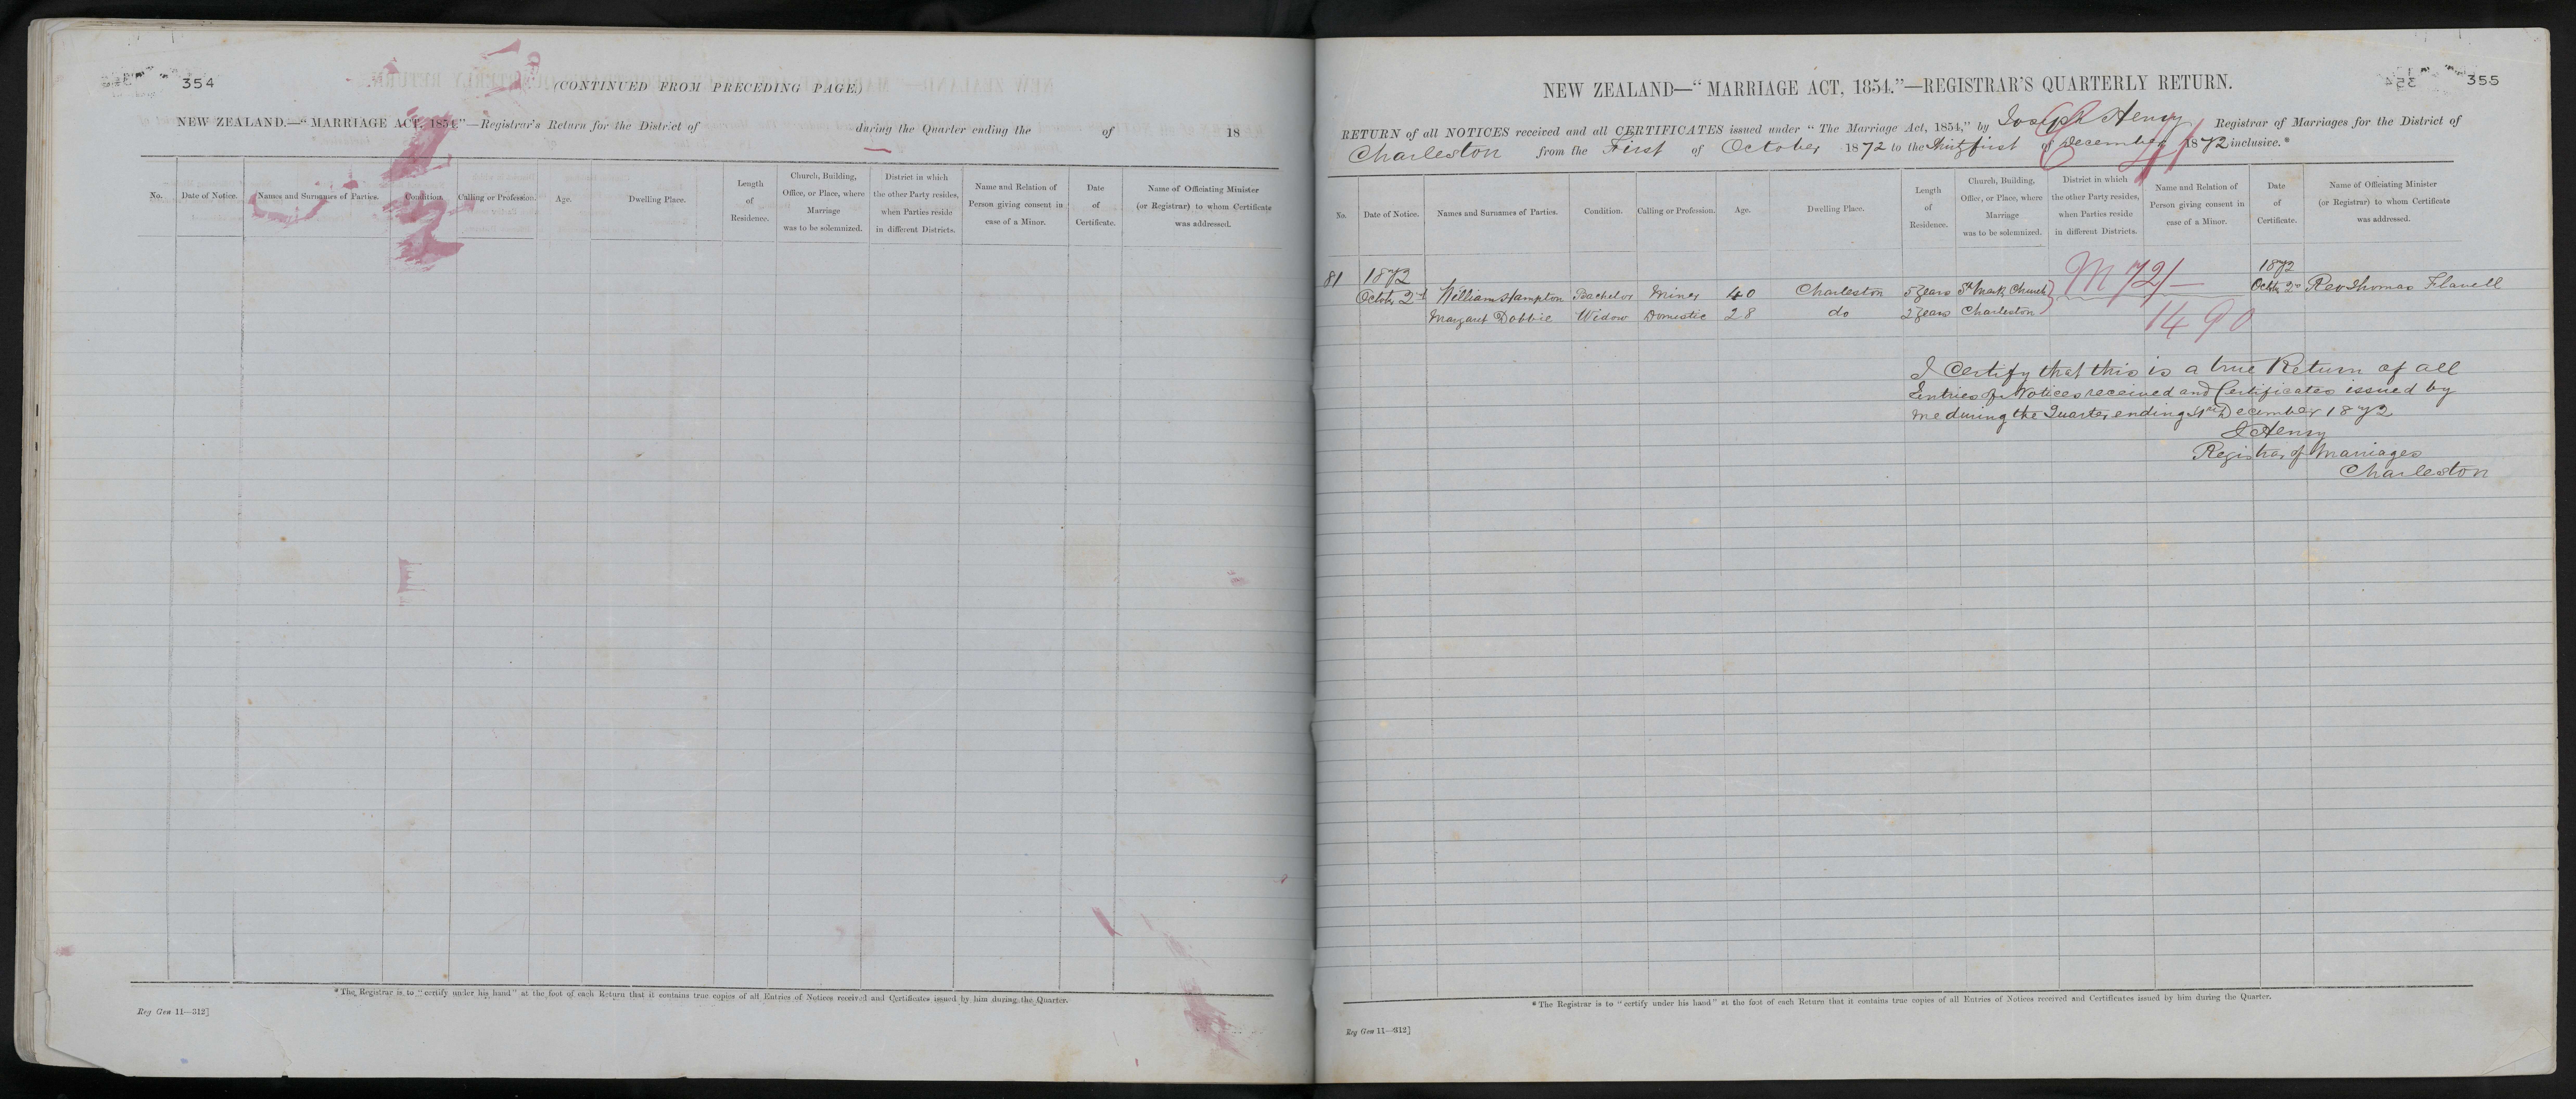 354
(CONTINUED FROM PRECEDING PAGE.)
NEW ZEALAND.—"MARRIAGE ACT, 1854."—Registrar's Return for the District of during the Quarter ending the of 18
No. Date of Notice. Names and Surnames of Parties. Condition. Calling or Profession. Age. Dwelling Place. Length of Residence. Church, Building, Office, or Place, where Marriage was to be solemnized. District in which the other Party resides, when Parties reside in different Districts. Name and Relation of Person giving consent in case of a Minor. Date of Certificate. Name of Officiating Minister (or Registrar) to whom Certificate was addressed.
*The Registrar is to "certify under his hand" at the foot of each Return that it contains true copies of all Entries of Notices received and Certificates issued by him during the Quarter.
Reg Gen 11—312]
355
NEW ZEALAND—"MARRIAGE ACT, 1854."—REGISTRAR'S QUARTERLY RETURN.
RETURN of all NOTICES received and all CERTIFICATES issued under "The Marriage Act, 1854," by Joseph Henry Registrar of Marriages for the District of
Charleston from the First of October 1872 to the Thirtyfirst of December 1872 inclusive.*
No. Date of Notice. Names and Surnames of Parties. Condition. Calling or Profession. Age. Dwelling Place. Length of Residence. Church, Building, Office, or Place, where Marriage was to be solemnized. District in which the other Party resides, when Parties reside in different Districts. Name and Relation of Person giving consent in case of a Minor. Date of Certificate. Name of Officiating Minister (or Registrar) to whom Certificate was addressed.
81 1872 M 72/— 1872
Octobr 2nd William Hampton Bachelor Miner 40 Charleston 5 Years St Mark Church Octbr 2nd Rev Thomas Flavell
Margaret Dobbie Widow Domestic 28 do 2 Years Charleston 1490
I Certify that this is a true Return of all
Entries of Notices received and Certificates issued by
me during the Quarter ending 31st December 1872
J Henry
Registrar of Marriages
Charleston
*The Registrar is to "certify under his hand" at the foot of each Return that it contains true copies of all Entries of Notices received and Certificates issued by him during the Quarter.
Reg Gen 11—312]